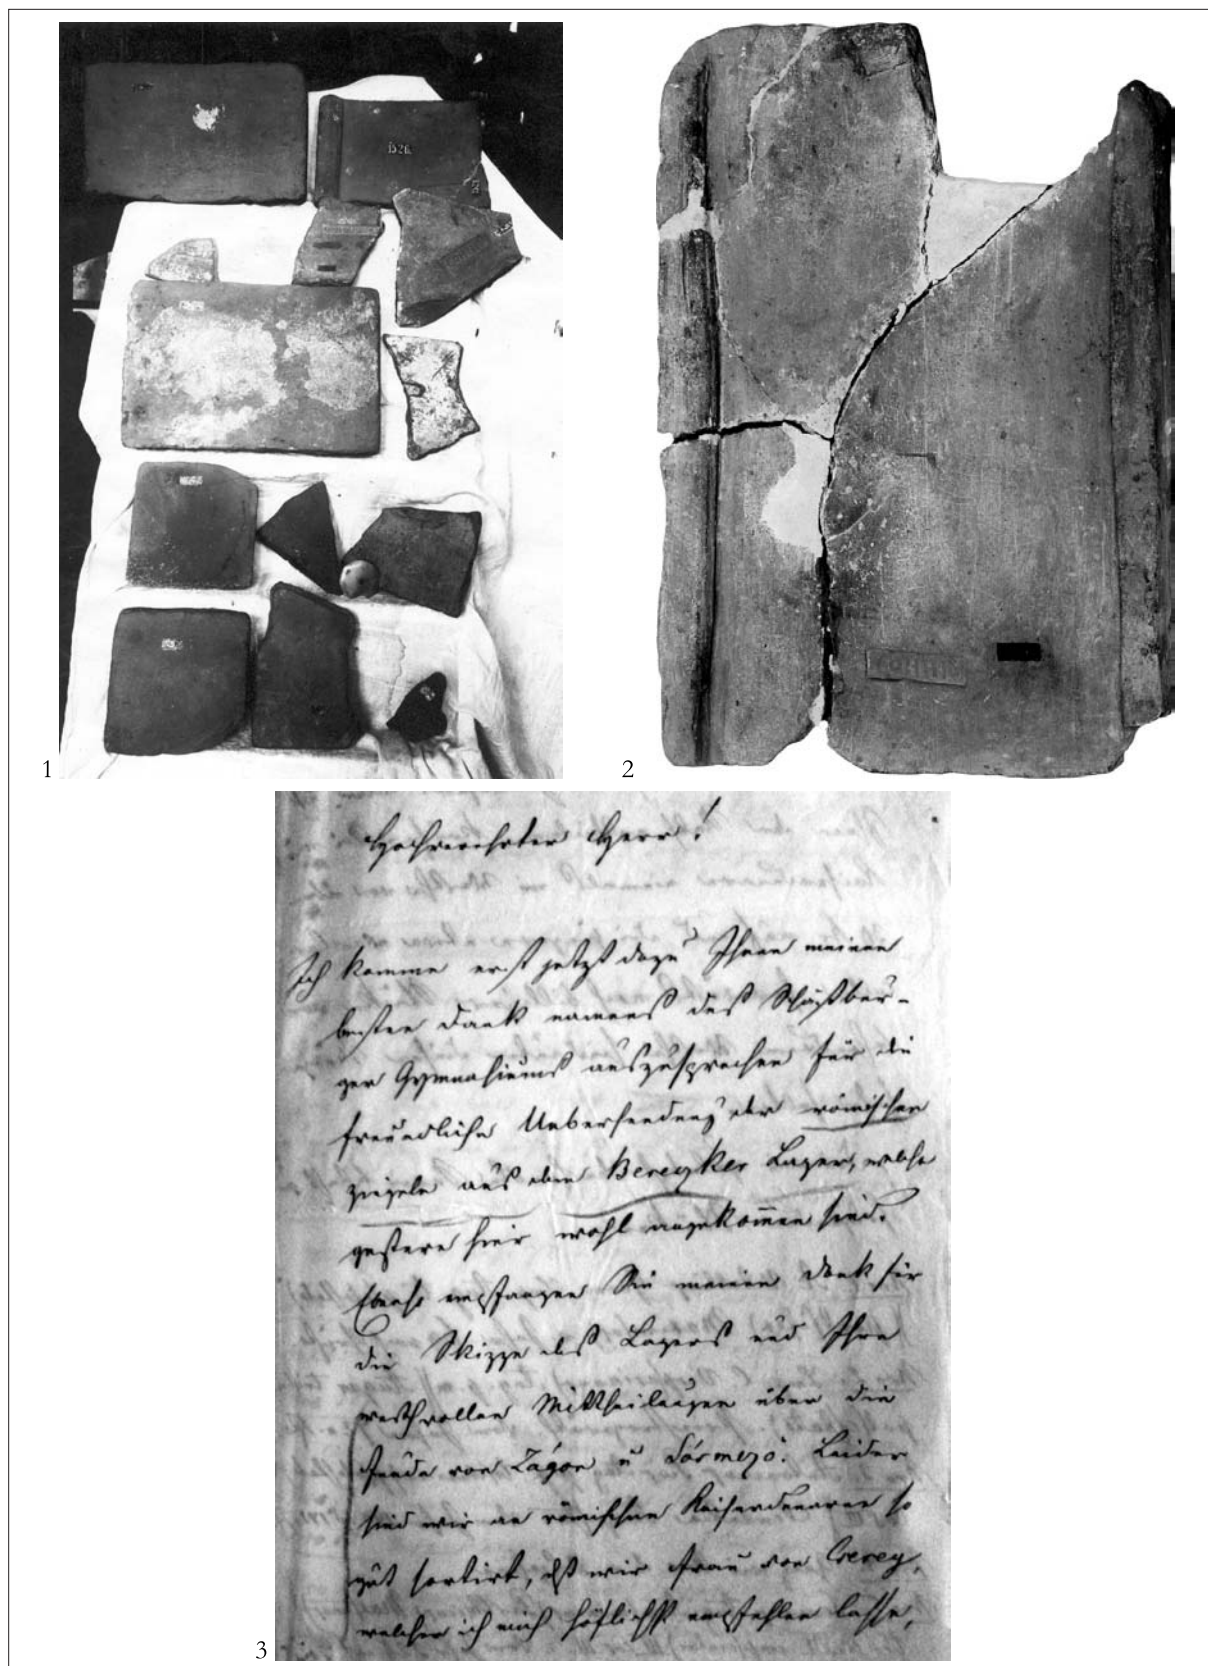 1
B26.
2
COHHI
3
Hochverehrter Herr!
Ich komme erst jetzt dazu Ihnen meinen
besten Dank namens des Schäßbur-
ger Gymnasiums auszusprechen für die
freundliche Uebersendung der römischen
Ziegeln aus dem Bereczker Lager, welche
gestern hier wohl angekommen sind.
Ebenso empfangen Sie meinen Dank für
die Skizze des Lagers und Ihre
werthvollen Mittheilungen über die
Funde von Zágon u Sósmező. Leider
sind wir an römischen Kaiserdenaren so
gut sortirt, dß wir Frau von Cserey,
welcher ich mich höflichst empfehlen lasse,